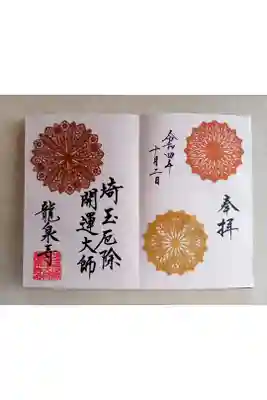 奉拝
令和四年
十月二日
埼玉厄除
開運大師
龍泉寺